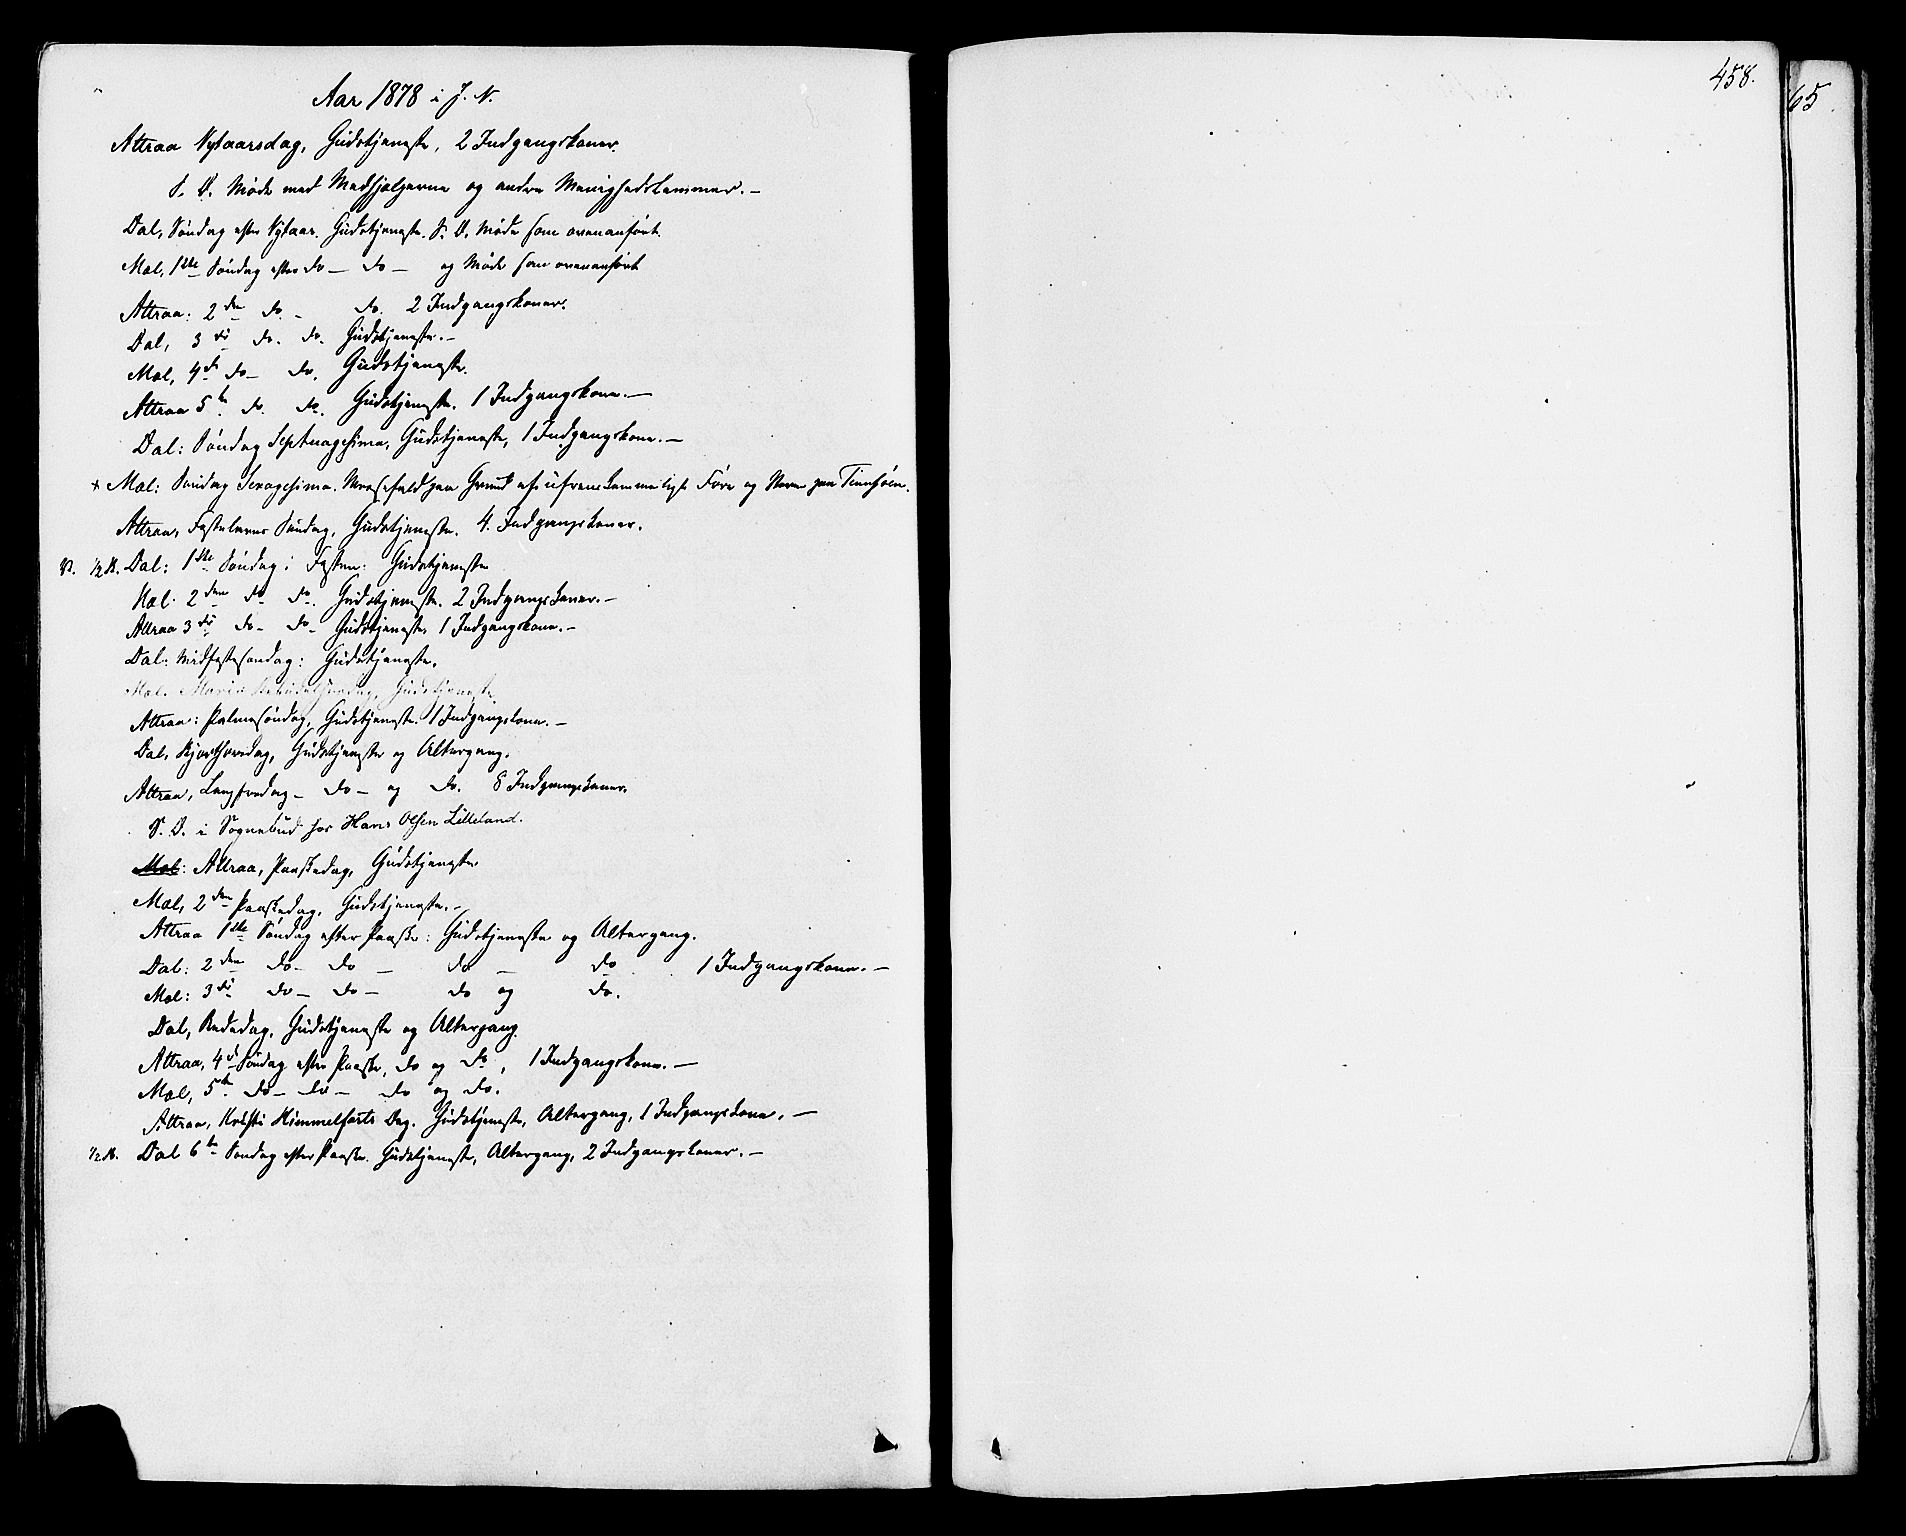 Aar 1878 i J. N.
Attraa Nytaarsdag, Gudstjeneste, 2 Indgangskoner.
S. D. Møde med Medhjælperne og andre Menighedslemmer. —
Dal, Søndag efter Nytaar. Gudstjeneste. S. D. Møde som ovenanført.
Mæl, 1ste Søndag efter do — do — og Møde som ovenanført
Attraa: 2den do. — do. 2 Indgangskoner.
Dal, 3di do. do. Gudstjeneste. —
Mæl, 4de do — do. Gudstjeneste.
Attraa 5te do. do. Gudstjeneste. 1 Indgangskone. —
Dal: Søndag Septuagesima, Gudstjeneste, 1 Indgangskone. —
+ Mæl: Søndag Sexagesima. Messefald paa Grund af ufremkommeligt Føre og paa Tinnsøen.
Attraa, Fastelavns Søndag, Gudstjeneste. 4. Indgangskoner.
V. 1/2 K. Dal: 1ste Søndag i Fasten: Gudstjeneste
Mæl. 2den do do. Gudstjeneste. 2 Indgangskoner. —
Attraa 3di do — do — Gudstjeneste, 1 Indgangskone. —
Dal: Midfastesøndag: Gudstjeneste.
Mæl. Mariæ Bebudelsesdag, Gudstjeneste
Attraa: Palmesøndag, Gudstjeneste. 1 Indgangskone. —
Dal, Skjærthorsdag, Gudstjeneste og Altergang.
Attraa, Langfredag — do — og do. 8 Indgangskoner.
S. D. i Sognebud hos Hans Olsen Lilleland.
Mæl: Attraa, Paaskedag, Gudstjeneste
Mæl, 2den Paaskedag, Gudstjeneste. —
Attraa 1ste Søndag efter Paaske: Gudstjeneste og Altergang.
Dal: 2den do — do — do — do 1 Indgangskone. —
Mæl: 3di do — do — do og do.
Dal, Bededag, Gudstjeneste og Altergang.
Attraa, 4de Søndag efter Paaske, do og do, 1 Indgangskone. —
Mæl, 5te do — do — do og do.
Attraa, Kristi Himmelfarts Dag. Gudstjeneste, Altergang, 1 Indgangskone. —
1/2 K. Dal 6te Søndag efter Paaske. Gudstjeneste, Altergang, 2 Indgangskoner. —
458.
65